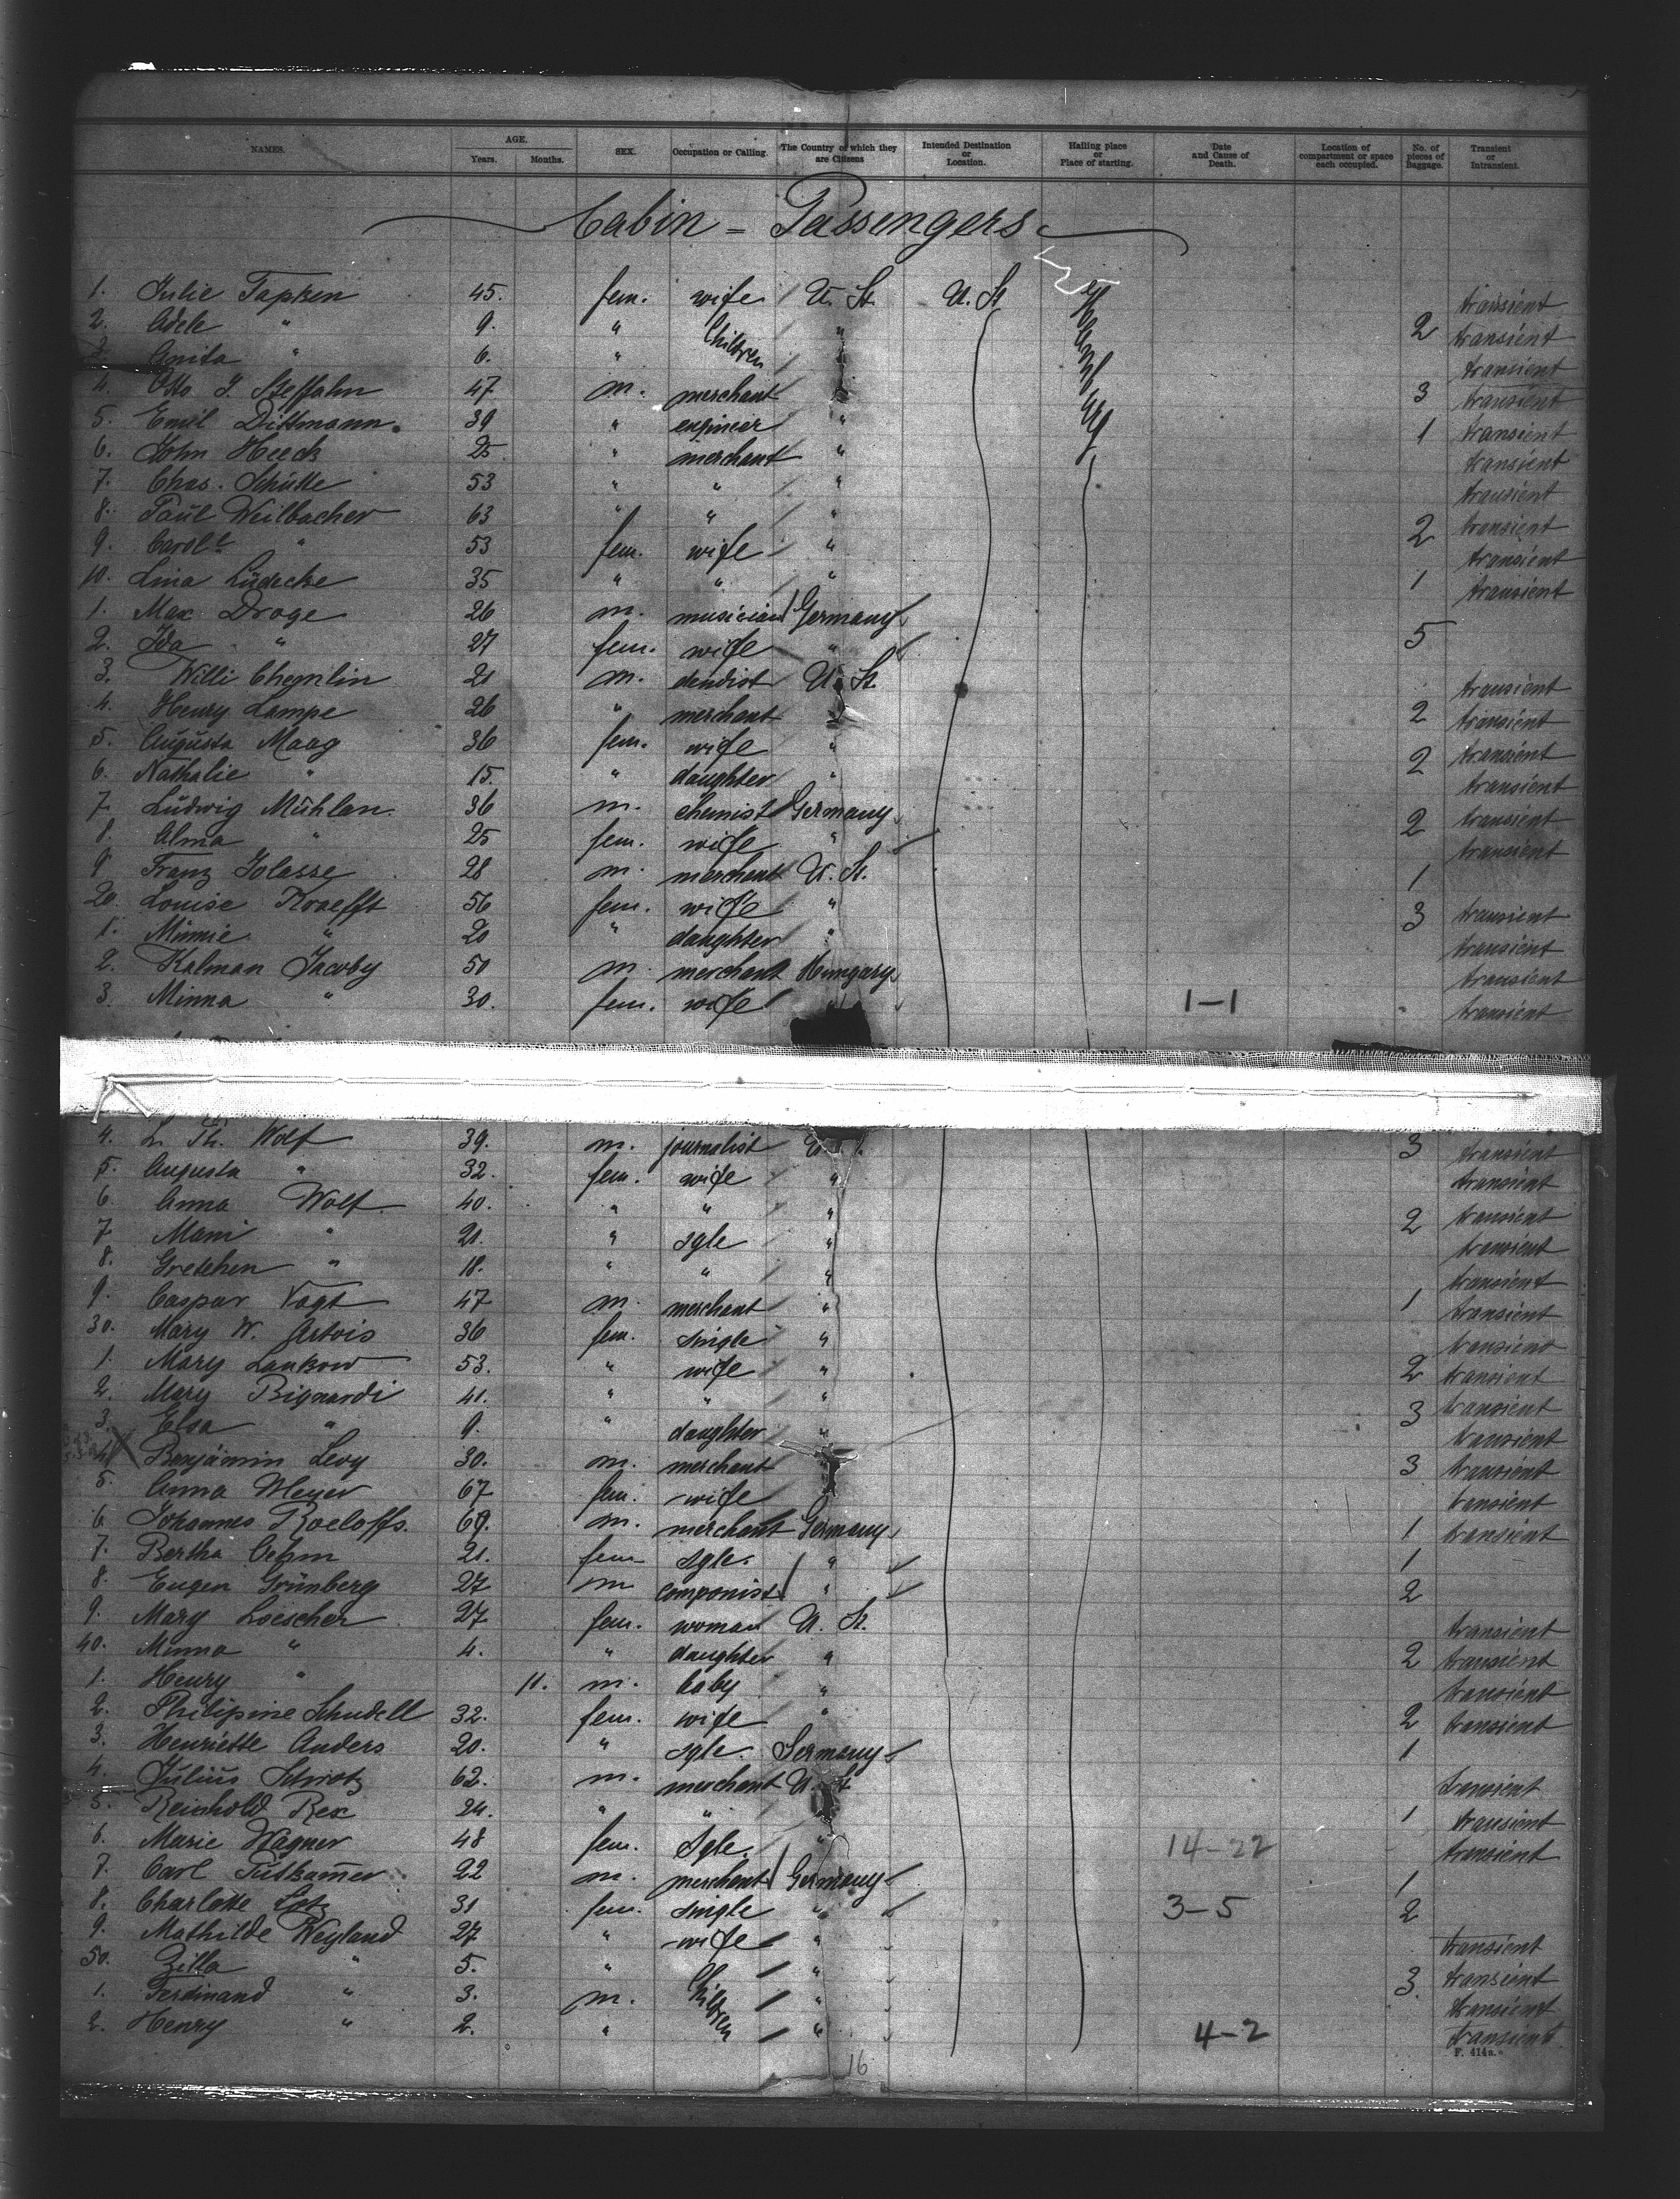 NAMES. AGE. Years. Months. SEX. Occupation or Calling. The Country of which they are Citizens Intended Destination or Location. Hailing place or Place of starting. Date and Cause of Death. Location of compartment or space each occupied. No. of pieces of Baggage. Transient or Intransient.
Cabin = Passengers
1. Julie Tapken 45. fem. wife U. St. U. St. Hamburg transient
2. Adele " 9. " Children " 2 transient
3. Anita " 6. " " transient
4. Otto J. Steffahn 47 m. merchant " 3 transient
5. Emil Dittmann 39 " engineer " 1 transient
6. John Heeck 25 " merchant " transient
7. Chas. Schütte 53 " " " transient
8. Paul Weilbacher 63 " " " 2 transient
9. Carol " 53 fem. wife " transient
10. Lina Lüdecke 35 " " " 1 transient
1. Max Droge 26 m. musician Germany
2. Ida " 27 fem. wife " 5
3. Willi 21 m. dentist U. St. transient
4. Henry Lampe 26 " merchant 2 transient
5. Augusta Maag 36 fem. wife " 2 transient
6. Nathalie " 15. " daughter " transient
7. Ludwig Mühlen 36 m. chemist Germany 2 transient
8. Alma " 25 fem. wife " transient
9 Franz 28 m. merchant U. St. 1
20. Louise Kraefft 56 fem. wife " 3 transient
1. Minnie " 20 " daughter " transient
2. Kalman Jacoby 50 m. merchant Hungary transient
3. Minna " 30. fem. wife " 1-1 transient
4. L. Th. Wolf 39. m. journalist 3 transient
5. Augusta " 32. fem. wife " transient
6. Anna Wolf 40. " " " 2 transient
7. Mani " 21. " sgle " transient
8. Gretchen " 18. " " " transient
9. Caspar Vogt 47 m. merchant " 1 transient
30. Mary W. Artois 36 fem. single " transient
1. Mary Lankow 53. " wife " 2 transient
2. Mary Bignardi 41. " " " 3 transient
3. Elsa " 9. " daughter " transient
4. Benjamin Levy 30. m. merchant 3 transient
5. Anna Meyer 67 fem. wife transient
6. Johannes Roeloffs. 69. m. merchant Germany 1 transient
7. Bertha Oehm 21. fem sgle. " 1
8. Eugen Grünberg 27 m componist " 2
9. Mary Loescher 27 fem. woman U. St. transient
40. Minna " 4. " daughter " 2 transient
1. Henry " 11. m. baby " transient
2. Philipine Schudell 32. fem. wife " 2 transient
3. Henriette Anders 20. " sgle. Germany 1
4. Julius 62. m. merchant U. St transient
5. Reinhold Rex 24. " " 1 transient
6. Marie Wagner 48 fem. sgle. " 14-22 transient
7. Carl Putkamer 22 m. merchant Germany 1
8. Charlotte Lotz 31 fem. single " 3-5 2
9. Mathilde Weyland 27 " wife " transient
50. Zilla " 5. " Children " 3. transient
1. Ferdinand " 3. m. " transient
2. Henry " 2. " " 4-2 transient
F. 414a.
16